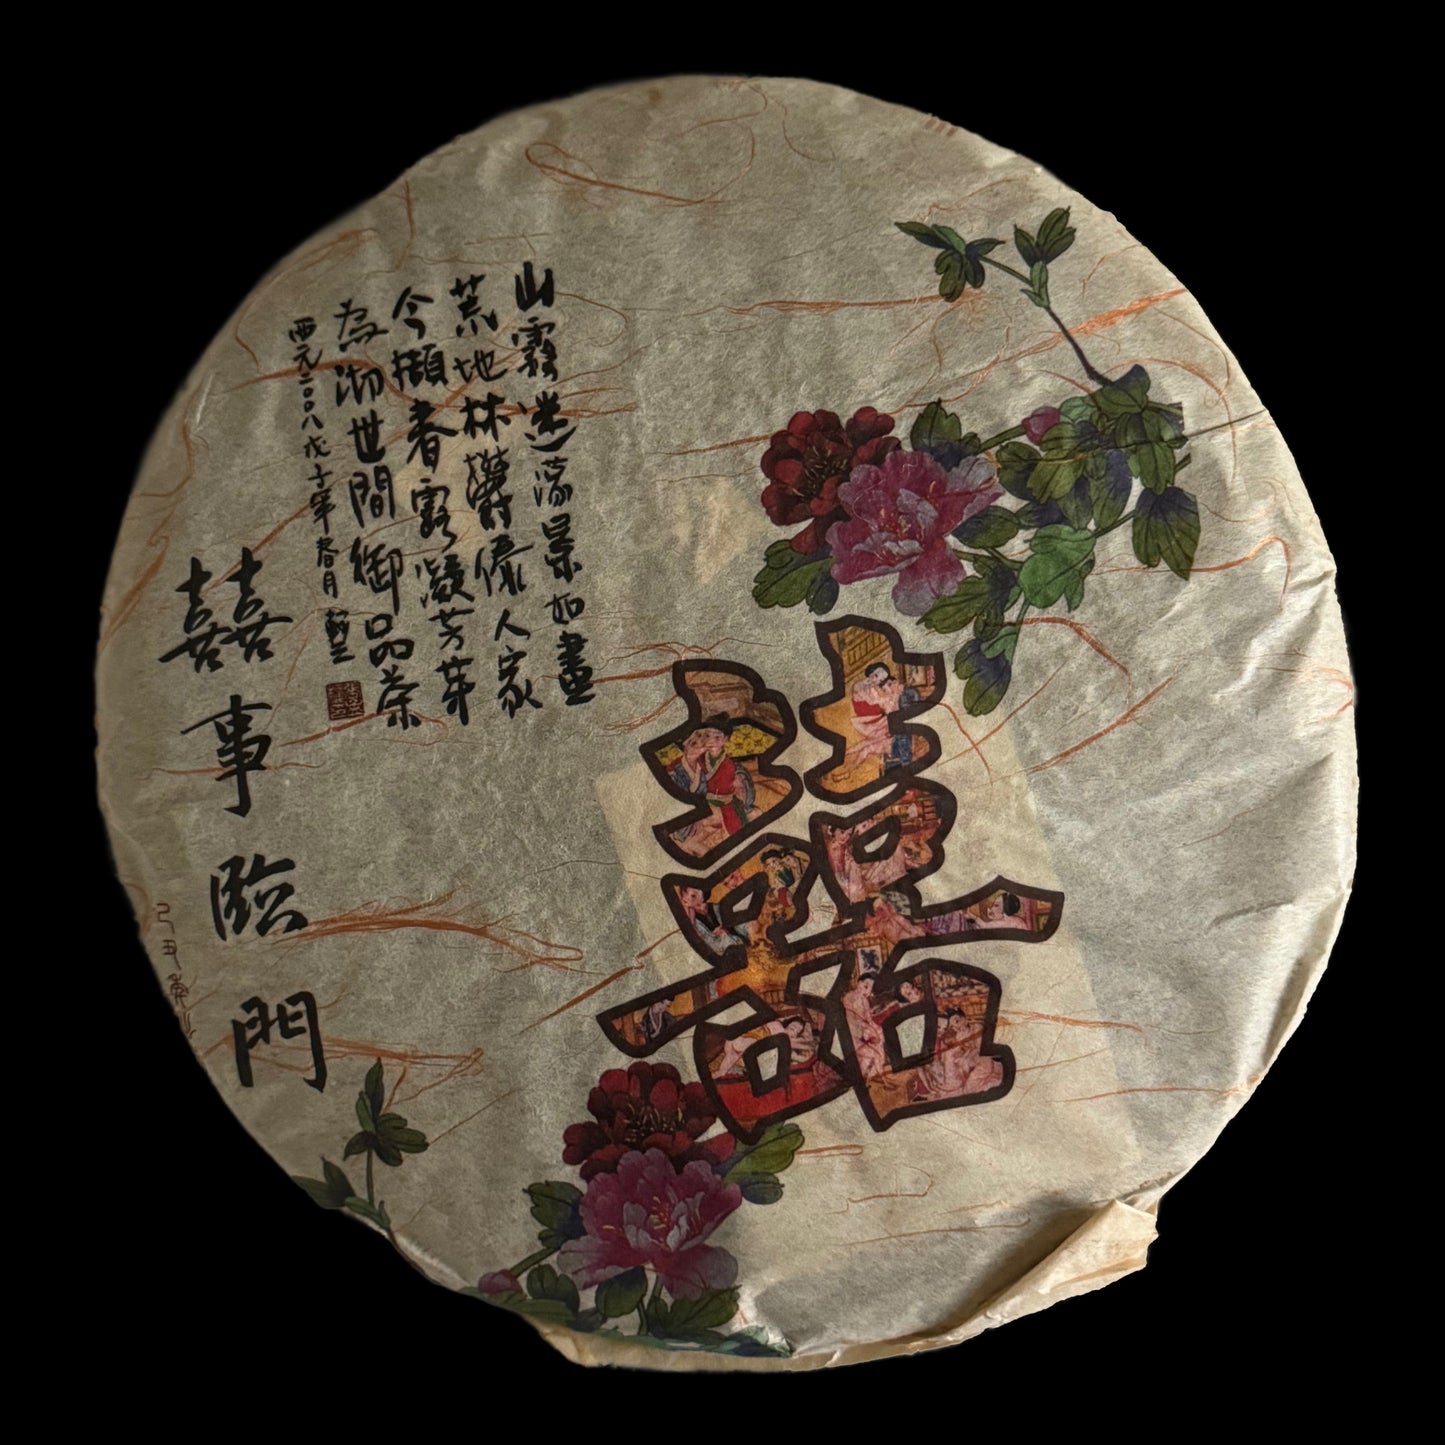 山霧迷濛景如畫
荒地林欝傣人家
今擷春露凝芳芽
為沏世間御品茶
西元二〇〇八戊子年春月
囍事臨門
囍
己丑